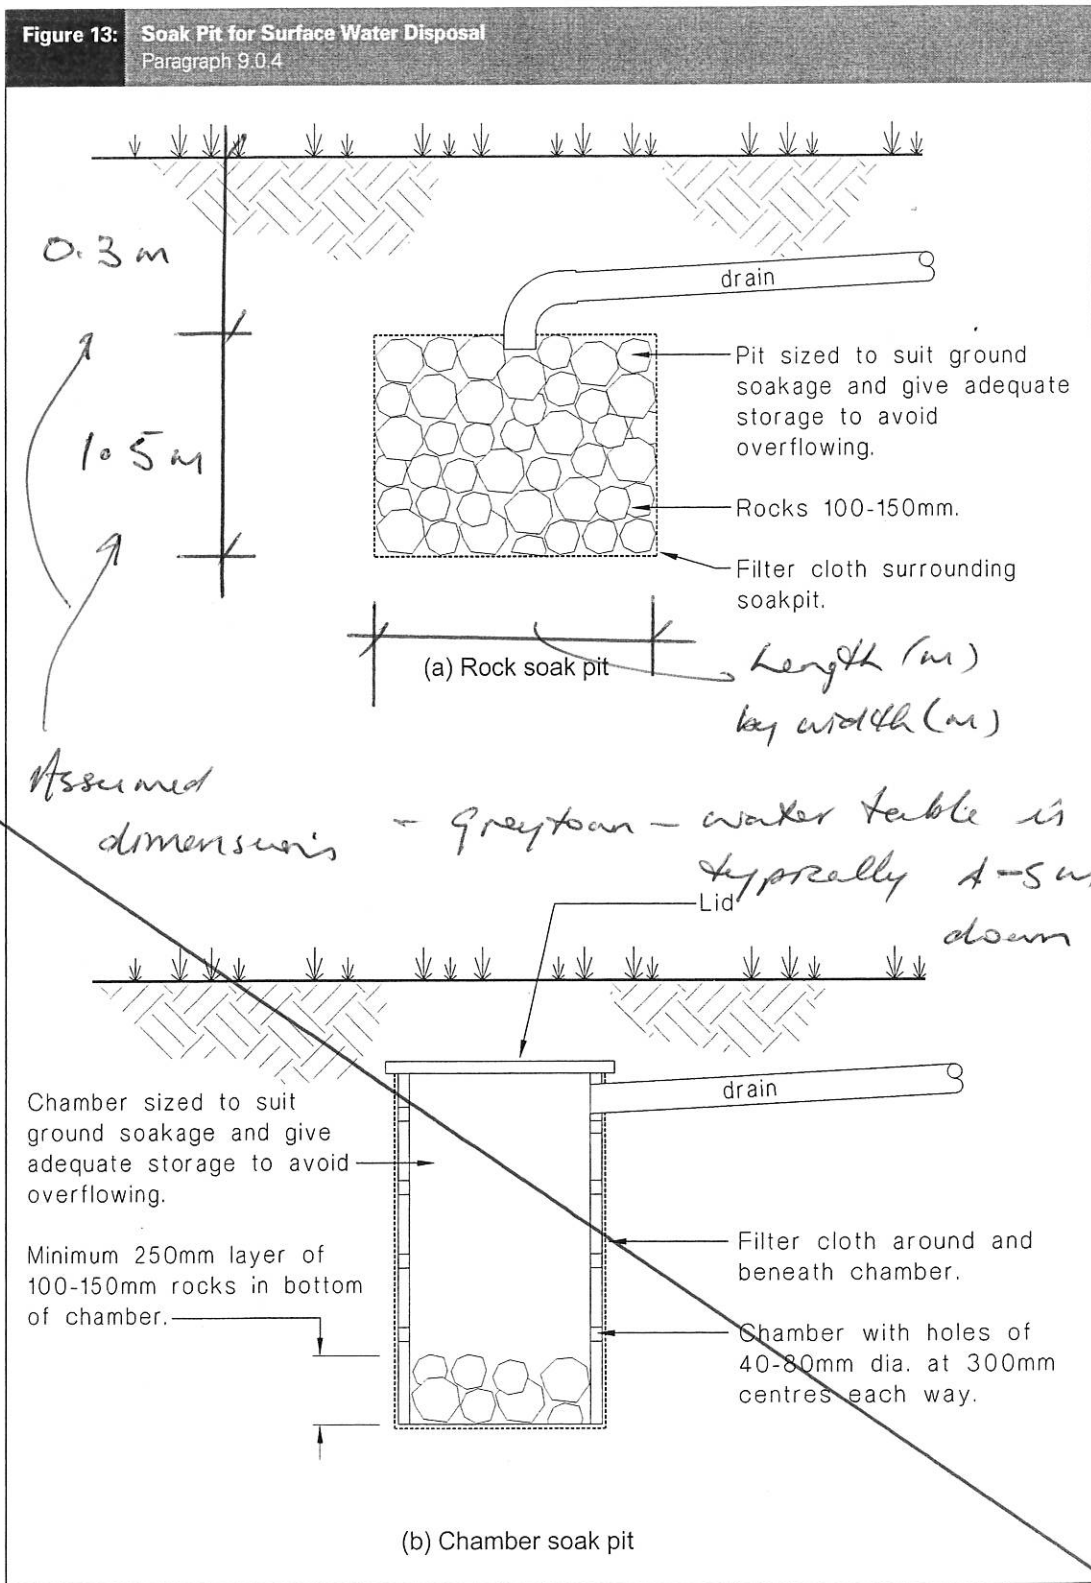 Figure 13: Soak Pit for Surface Water Disposal
Paragraph 9.0.4
0.3 m
drain
Pit sized to suit ground
soakage and give adequate
storage to avoid
overflowing.
1.5 m
Rocks 100-150mm.
Filter cloth surrounding
soakpit.
(a) Rock soak pit
Length (m)
by width (m)
Assumed
dimensions
- Greytown - water table is
typically 4-5 m
down
Lid
drain
Chamber sized to suit
ground soakage and give
adequate storage to avoid
overflowing.
Minimum 250mm layer of
100-150mm rocks in bottom
of chamber.
Filter cloth around and
beneath chamber.
Chamber with holes of
40-80mm dia. at 300mm
centres each way.
(b) Chamber soak pit